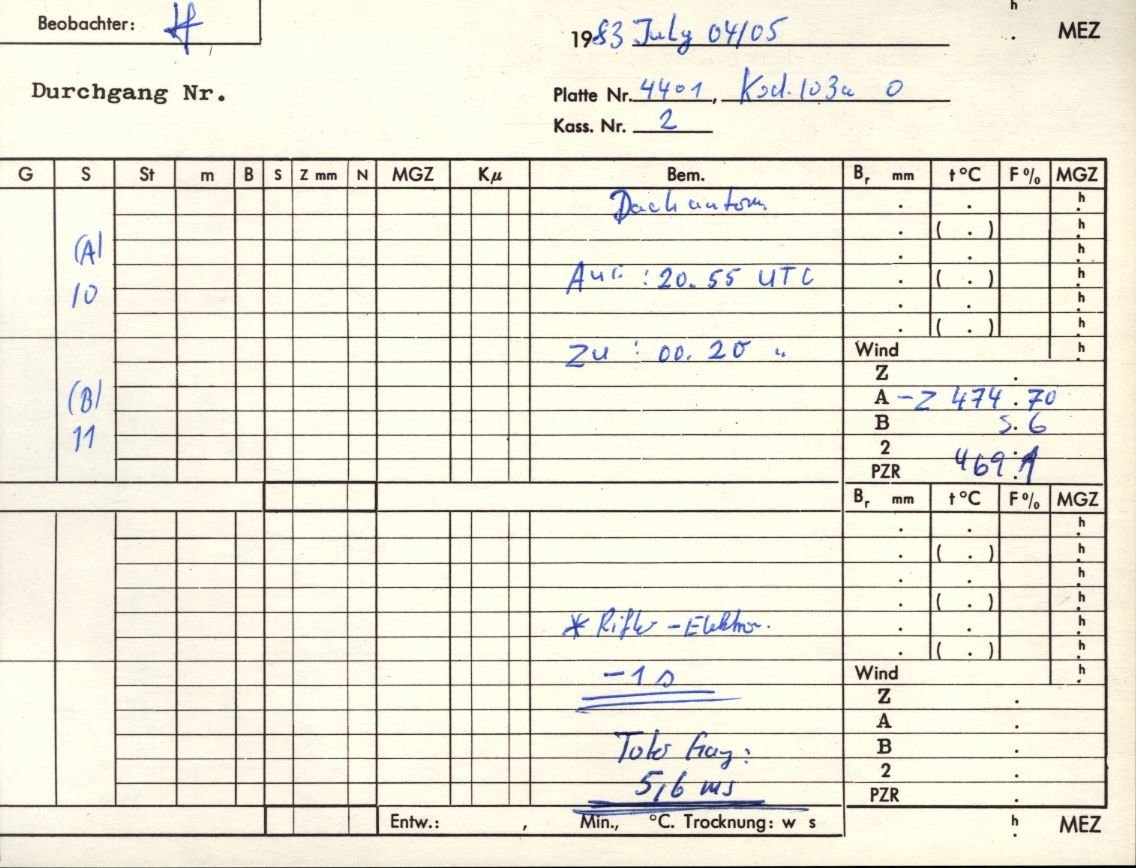 h
Beobachter:
1983 July 04/05 . MEZ
Durchgang Nr.
Platte Nr. 4401, Kod. 103a O
Kass. Nr. 2
G S St m B S Z mm N MGZ Kμ Bem. Br mm t °C F % MGZ
Dachautom. . . h
(A) . ( . ) h
. . h
10 Auf : 20.55 UTC . ( . ) h
. . h
. ( . ) h
Zu : 00.20 " Wind h
Z .
(B) A - Z 474.70
11 B 5.6
2 .
PZR 469.1
Br mm t °C F % MGZ
. . h
. ( . ) h
. . h
. ( . ) h
* Rifler - Elektron. . . h
. ( . ) h
-1 s Wind h
Z .
A .
Toter Gang: B .
5,6 ms 2 .
PZR .
Entw.: , Min., °C. Trocknung: w s h . MEZ